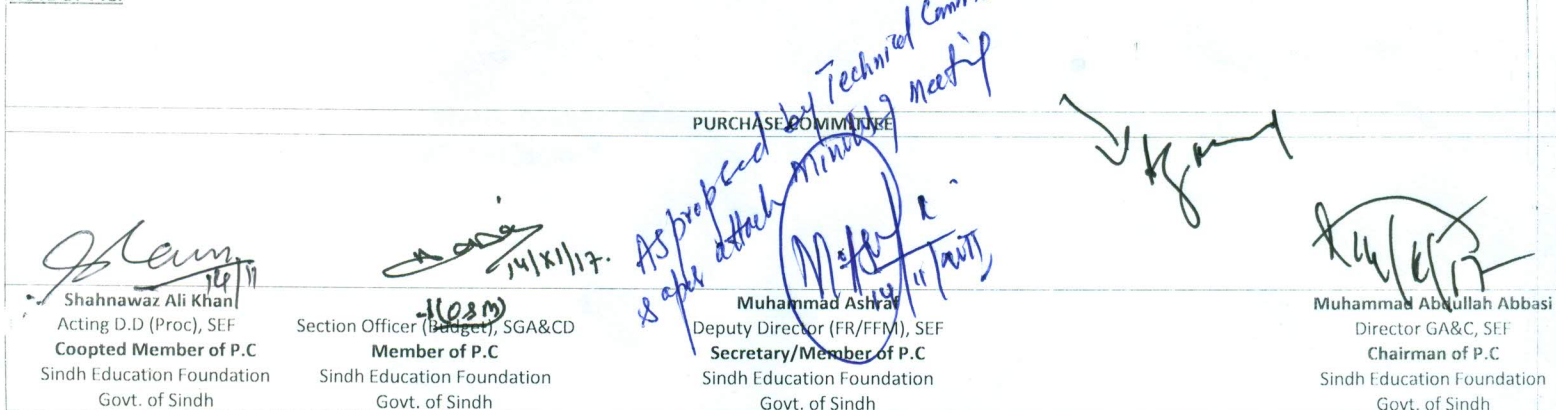 As proposed by Technical
& as per attach minutes of meeting
PURCHASE COMMITTEE
14/11
14/XI/17.
14/11/2017
Shahnawaz Ali Khan
Acting D.D (Proc), SEF
Coopted Member of P.C
Sindh Education Foundation
Govt. of Sindh
Section Officer (Budget), SGA&CD
Member of P.C
Sindh Education Foundation
Govt. of Sindh
Muhammad Ashraf
Deputy Director (FR/FFM), SEF
Secretary/Member of P.C
Sindh Education Foundation
Govt. of Sindh
Muhammad Abdullah Abbasi
Director GA&C, SEF
Chairman of P.C
Sindh Education Foundation
Govt. of Sindh